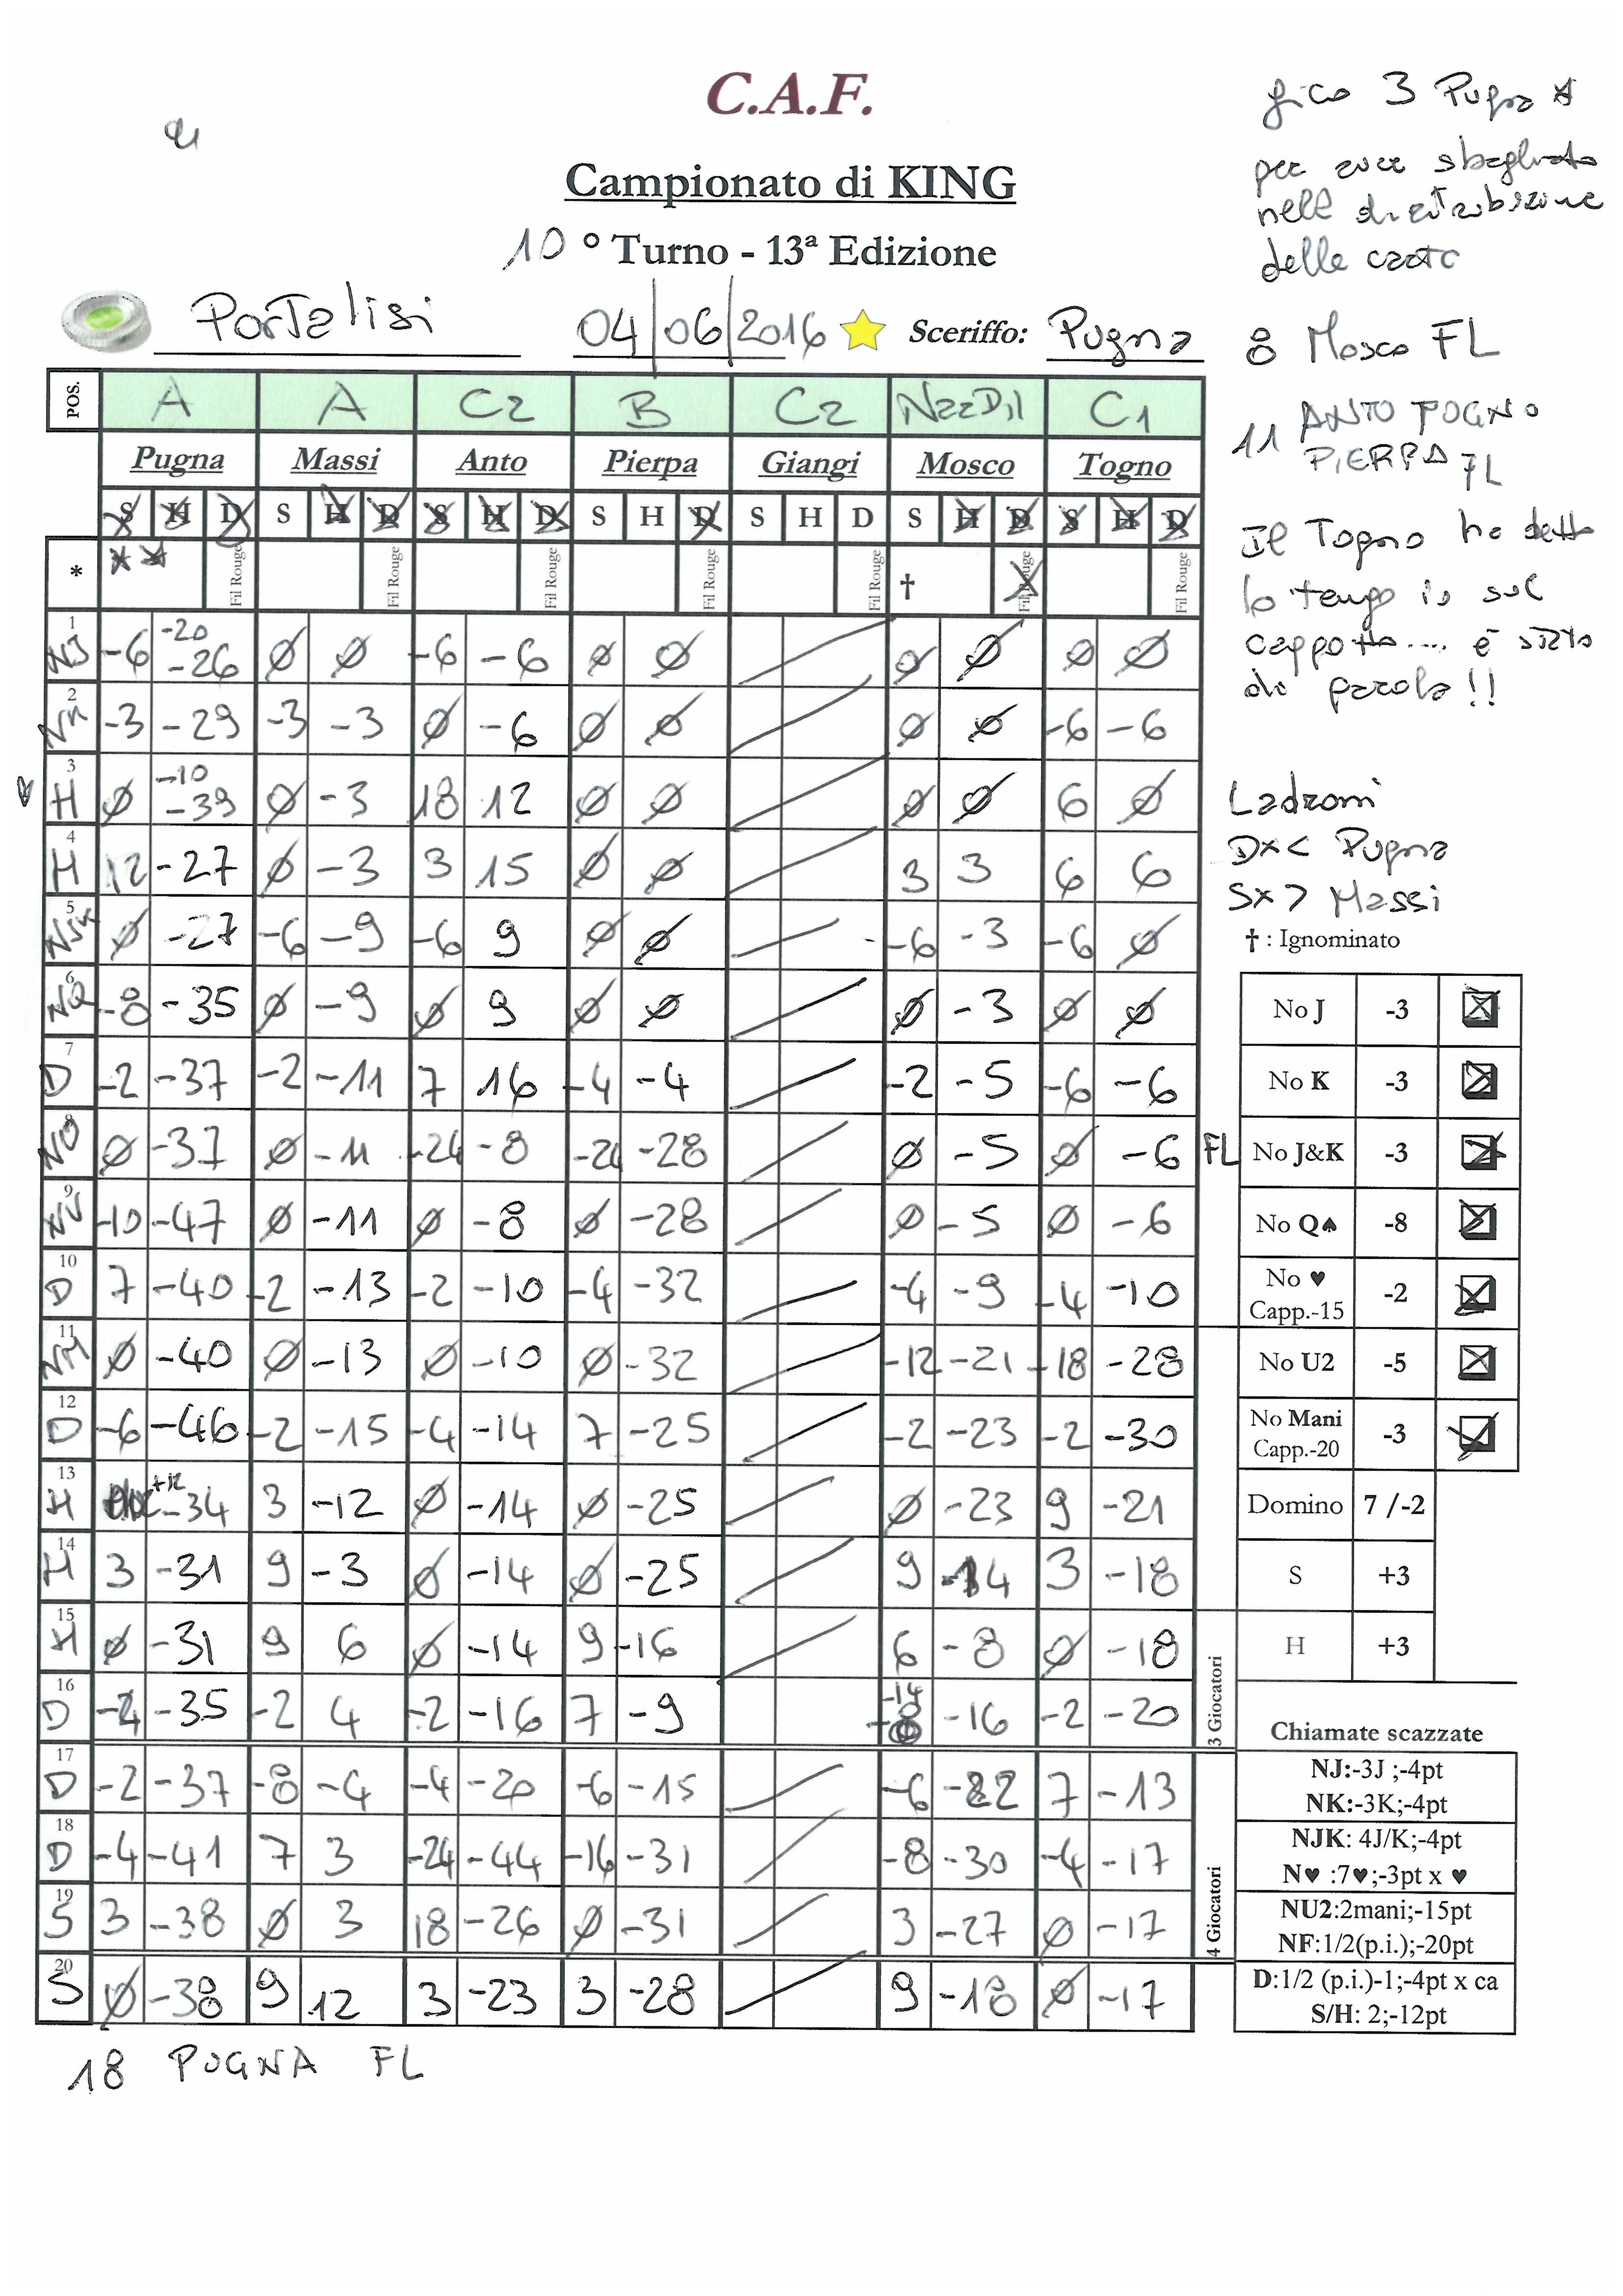 C.A.F.
Campionato di KING
10 ° Turno - 13ª Edizione
PorTalisi 04/06/2016 Sceriffo: Pugna
gico 3 Pugna
per aver sbagliato
nell distribuzione
delle carte
8 Mosco FL
11 ANTO TOGNO
PIERPA FL
Il Togno ha detto
lo tengo io sul
cappotto.... è stato
di parola!!
Ladroni
Dx < Pugna
Sx > Massi
† : Ignominato
POS. A A C2 B C2 NazDil C1
Pugna Massi Anto Pierpa Giangi Mosco Togno
S H D S H D S H D S H D S H D S H D S H D
* ** Fil Rouge Fil Rouge Fil Rouge Fil Rouge Fil Rouge † Fil Rouge Fil Rouge
1 NJ -6 -20 -26 Ø Ø -6 -6 Ø Ø Ø Ø Ø Ø
2 NK -3 -29 -3 -3 Ø -6 Ø Ø Ø Ø -6 -6
3 H Ø -10 -39 Ø -3 18 12 Ø Ø Ø Ø 6 Ø
4 H 12 -27 Ø -3 3 15 Ø Ø 3 3 6 6
5 NJK Ø -27 -6 -9 -6 9 Ø Ø -6 -3 -6 Ø
6 NQ -8 -35 Ø -9 Ø 9 Ø Ø Ø -3 Ø Ø
7 D -2 -37 -2 -11 7 16 -4 -4 -2 -5 -6 -6
8 Ø -37 Ø -11 -24 -8 -24 -28 Ø -5 Ø -6 FL
9 NU -10 -47 Ø -11 Ø -8 Ø -28 Ø -5 Ø -6
10 D 7 -40 -2 -13 -2 -10 -4 -32 -4 -9 -4 -10
11 NM Ø -40 Ø -13 Ø -10 Ø -32 -12 -21 -18 -28
12 D -6 -46 -2 -15 -4 -14 7 -25 -2 -23 -2 -30
13 H +12 -34 3 -12 Ø -14 Ø -25 Ø -23 9 -21
14 H 3 -31 9 -3 Ø -14 Ø -25 9 -14 3 -18
15 H Ø -31 9 6 Ø -14 9 -16 6 -8 Ø -18
16 D -4 -35 -2 4 -2 -16 7 -9 -14 -8 -16 -2 -20
17 D -2 -37 -8 -4 -4 -20 -6 -15 -6 -22 7 -13
18 D -4 -41 7 3 -24 -44 -16 -31 -8 -30 -4 -17
19 S 3 -38 Ø 3 18 -26 Ø -31 3 -27 Ø -17
20 S Ø -38 9 12 3 -23 3 -28 9 -18 Ø -17
3 Giocatori
4 Giocatori
No J -3
No K -3
No J&K -3
No Q♠ -8
No ♥
Capp.-15 -2
No U2 -5
No Mani
Capp.-20 -3
Domino 7 /-2
S +3
H +3
Chiamate scazzate
NJ:-3J ;-4pt
NK:-3K;-4pt
NJK: 4J/K;-4pt
N♥ :7♥;-3pt x ♥
NU2:2mani;-15pt
NF:1/2(p.i.);-20pt
D:1/2 (p.i.)-1;-4pt x ca
S/H: 2;-12pt
18 PUGNA FL